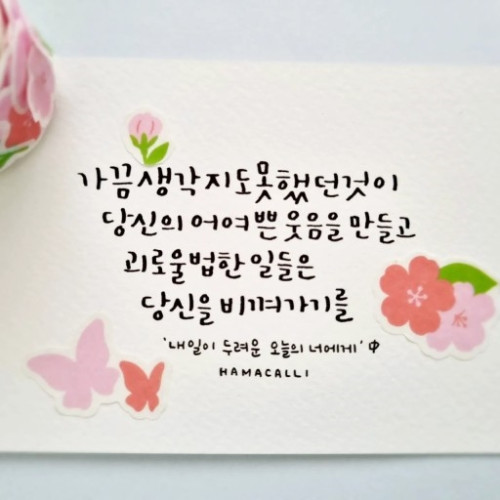 가끔 생각지도 못했던 것이
당신의 어여쁜 웃음을 만들고
괴로울법한 일들은
당신을 비껴가기를
'내일이 두려운 오늘의 너에게' 中
HAMACALLI